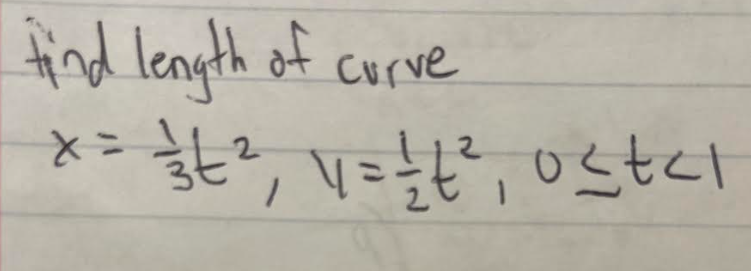 find length of curve
x = 1/3 t², y = 1/2 t², 0 ≤ t < 1